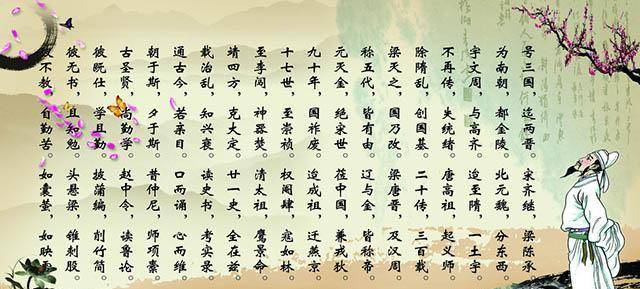 号三国，迄两晋。宋齐继，梁陈承
为南朝，都金陵。北元魏，分东西
宇文周，与高齐。迨至隋，一土宇
不再传，失统绪。唐高祖，起义师
除隋乱，创国基。二十传，三百载
梁灭之，国乃改。梁唐晋，及汉周
称五代，皆有由。辽与金，皆称帝
元灭金，绝宋世。莅中国，兼戎狄
九十年，国祚废。迨成祖，迁燕京
十七世，至崇祯。权阉肆，寇如林
至李闯，神器焚。清太祖，膺景命
靖四方，克大定。廿一史，全在兹
载治乱，知兴衰。读史书，考实录
通古今，若亲目。口而诵，心而维
朝于斯，夕于斯。昔仲尼，师项橐
古圣贤，尚勤学。赵中令，读鲁论
彼既仕，学且勤。披蒲编，削竹简
彼无书，且知勉。头悬梁，锥刺股
彼不教，自勤苦。如囊萤，如映雪